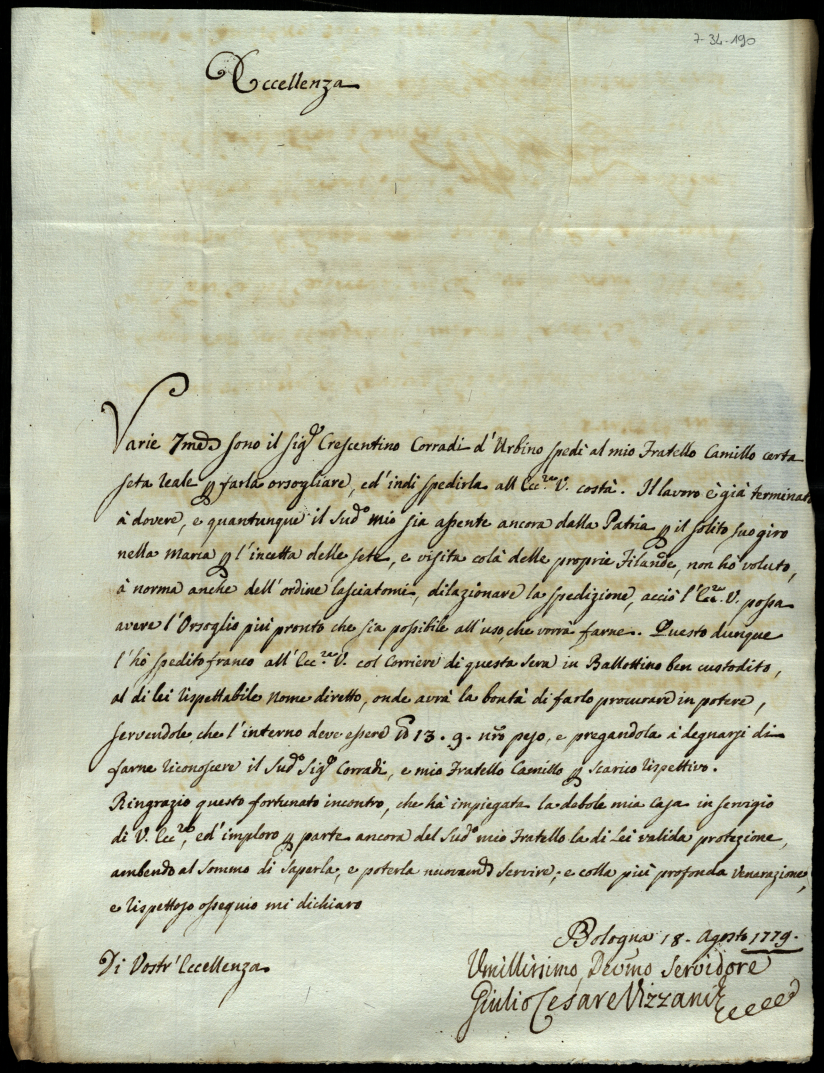 7-34-190
Eccellenza
Varie 7mne sono il Sigr Crescentino Corradi d'Urbino spedì al mio Fratello Camillo certa
seta reale p farla orsogliare, ed' indi spedirla all'Eccza V. costà. Il lavoro è già terminato
à dovere, e quantunque il Sudo mio sia assente ancora dalla Patria p il solito suo giro
nella Marca p l'incetta delle sete, e visita colà delle proprie Filande, non hò voluto,
à norma anche dell'ordine lasciatomi, dilazionare la spedizione, acciò l'Ecca V. possa
avere l'Orsoglio più pronto che sia possibile all'uso, che vorrà farne. Questo dunque
l'hò spedito franco all'Ecca V. col Corriere di questa sera in Ballottino ben custodito,
al di lei rispettabile nome diretto, onde avrà la bontà di farlo procurare in potere,
servendole, che l'interno deve essere 13. 9. nro peso, e pregandola à degnarsi di
farne riconoscere il Sudo Sigr Corradi, e mio Fratello Camillo p scarico rispettivo.
Ringrazio questo fortunato incontro, che hà impiegata la debole mia Casa in servigio
di V. Ecca, ed'imploro p parte ancora del Sudo mio Fratello la di Lei valida protezione,
ambendo al sommo di saperla, e poterla nuovamte servire; e colla più profonda venerazione,
e rispettoso ossequio mi dichiaro
Bologna 18. Agosto 1779.
Di Vostr'Eccellenza
Umillissimo, Devmo Servidore
Giulio Cesare Vizzani